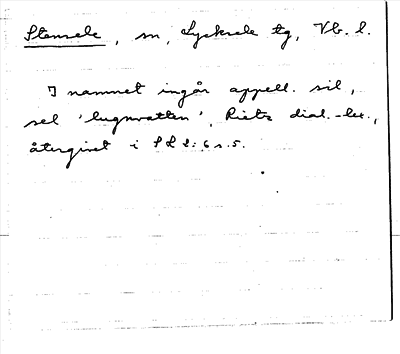 Stensele, sn, Lycksele tg, Vb. l.
I namnet ingår appell. sil,
sel 'lugnvatten', Rietz dial.-lex.,
återgivet i SOL 2: 6 s. 5.